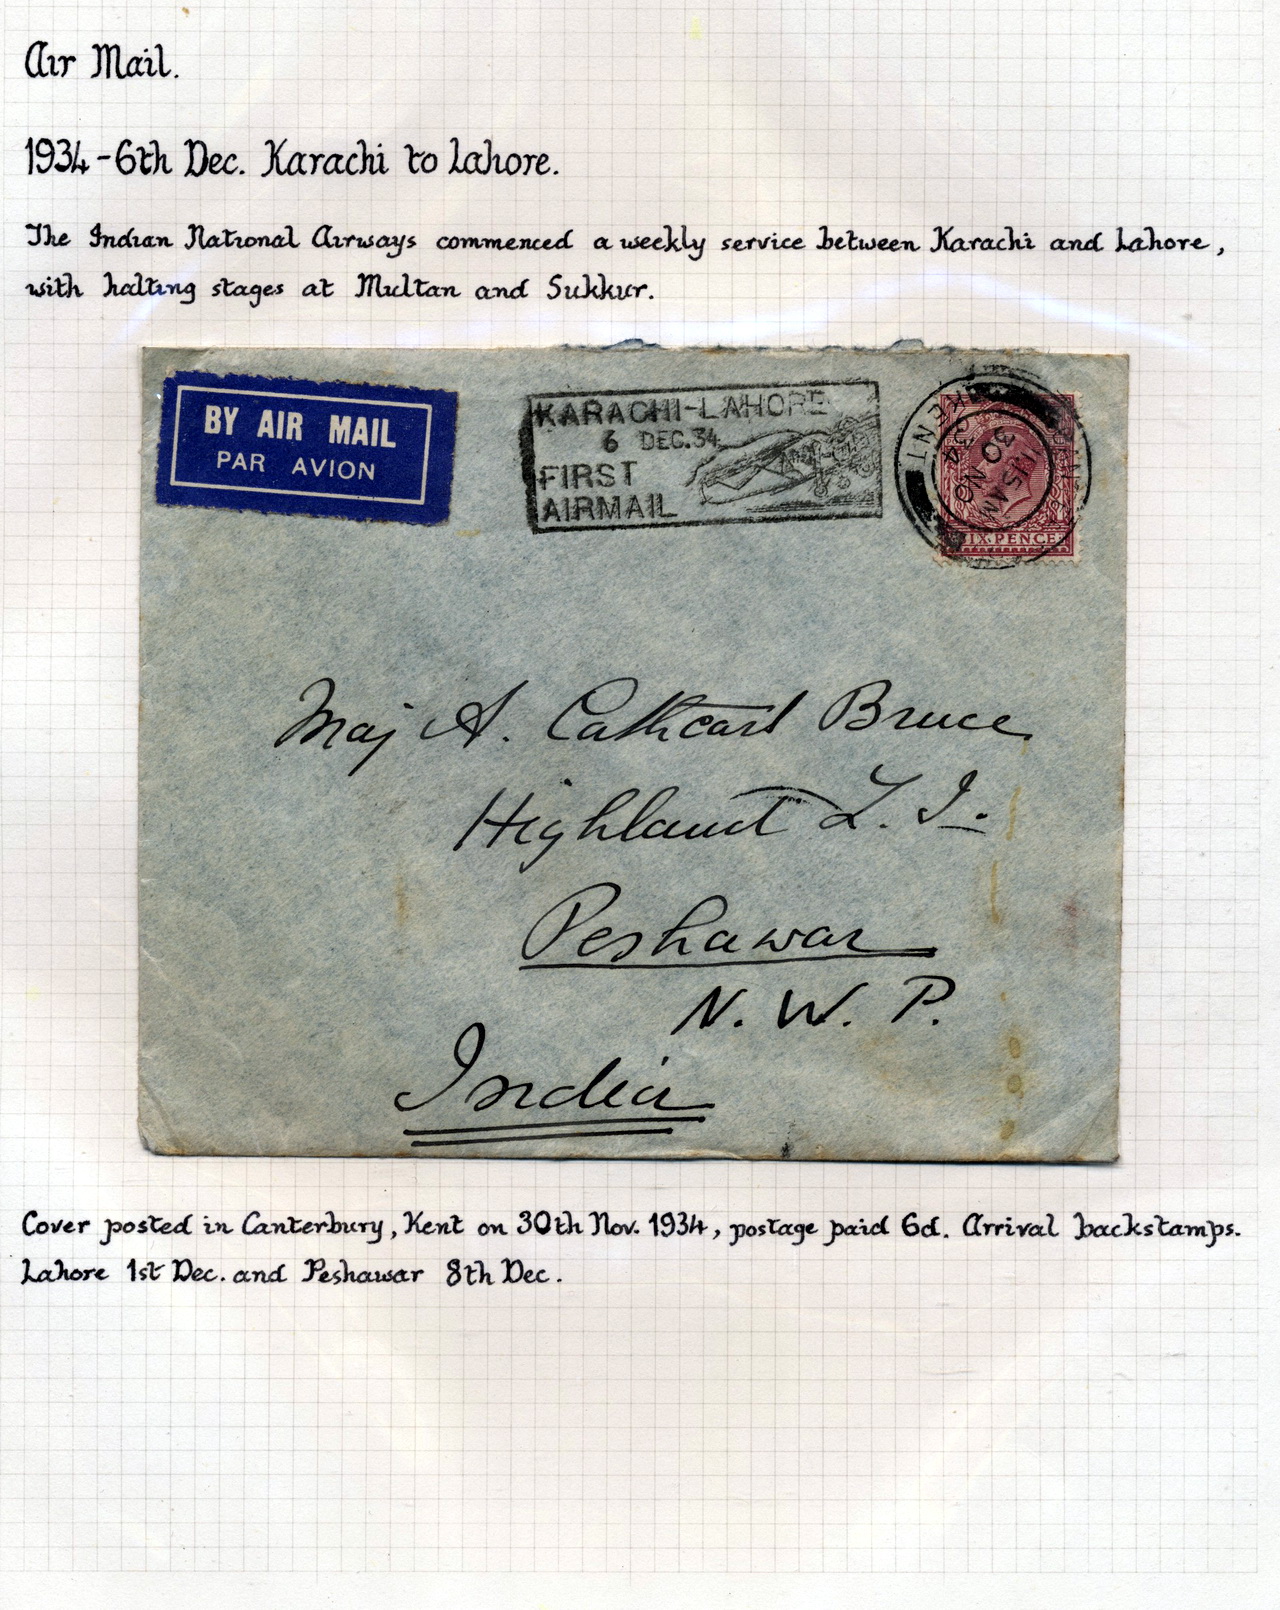 Air Mail.
1934-6th Dec. Karachi to Lahore.
The Indian National Airways commenced a weekly service between Karachi and Lahore,
with halting stages at Multan and Sukkur.
BY AIR MAIL
PAR AVION
KARACHI-LAHORE
6 DEC.34
FIRST
AIRMAIL
KENT
30 NO
34
SIX PENCE
Maj A. Cathcart Bruce
Highland L.I.
Peshawar
N.W.P.
India
Cover posted in Canterbury, Kent on 30th Nov. 1934, postage paid 6d. Arrival backstamps.
Lahore 1st Dec. and Peshawar 8th Dec.